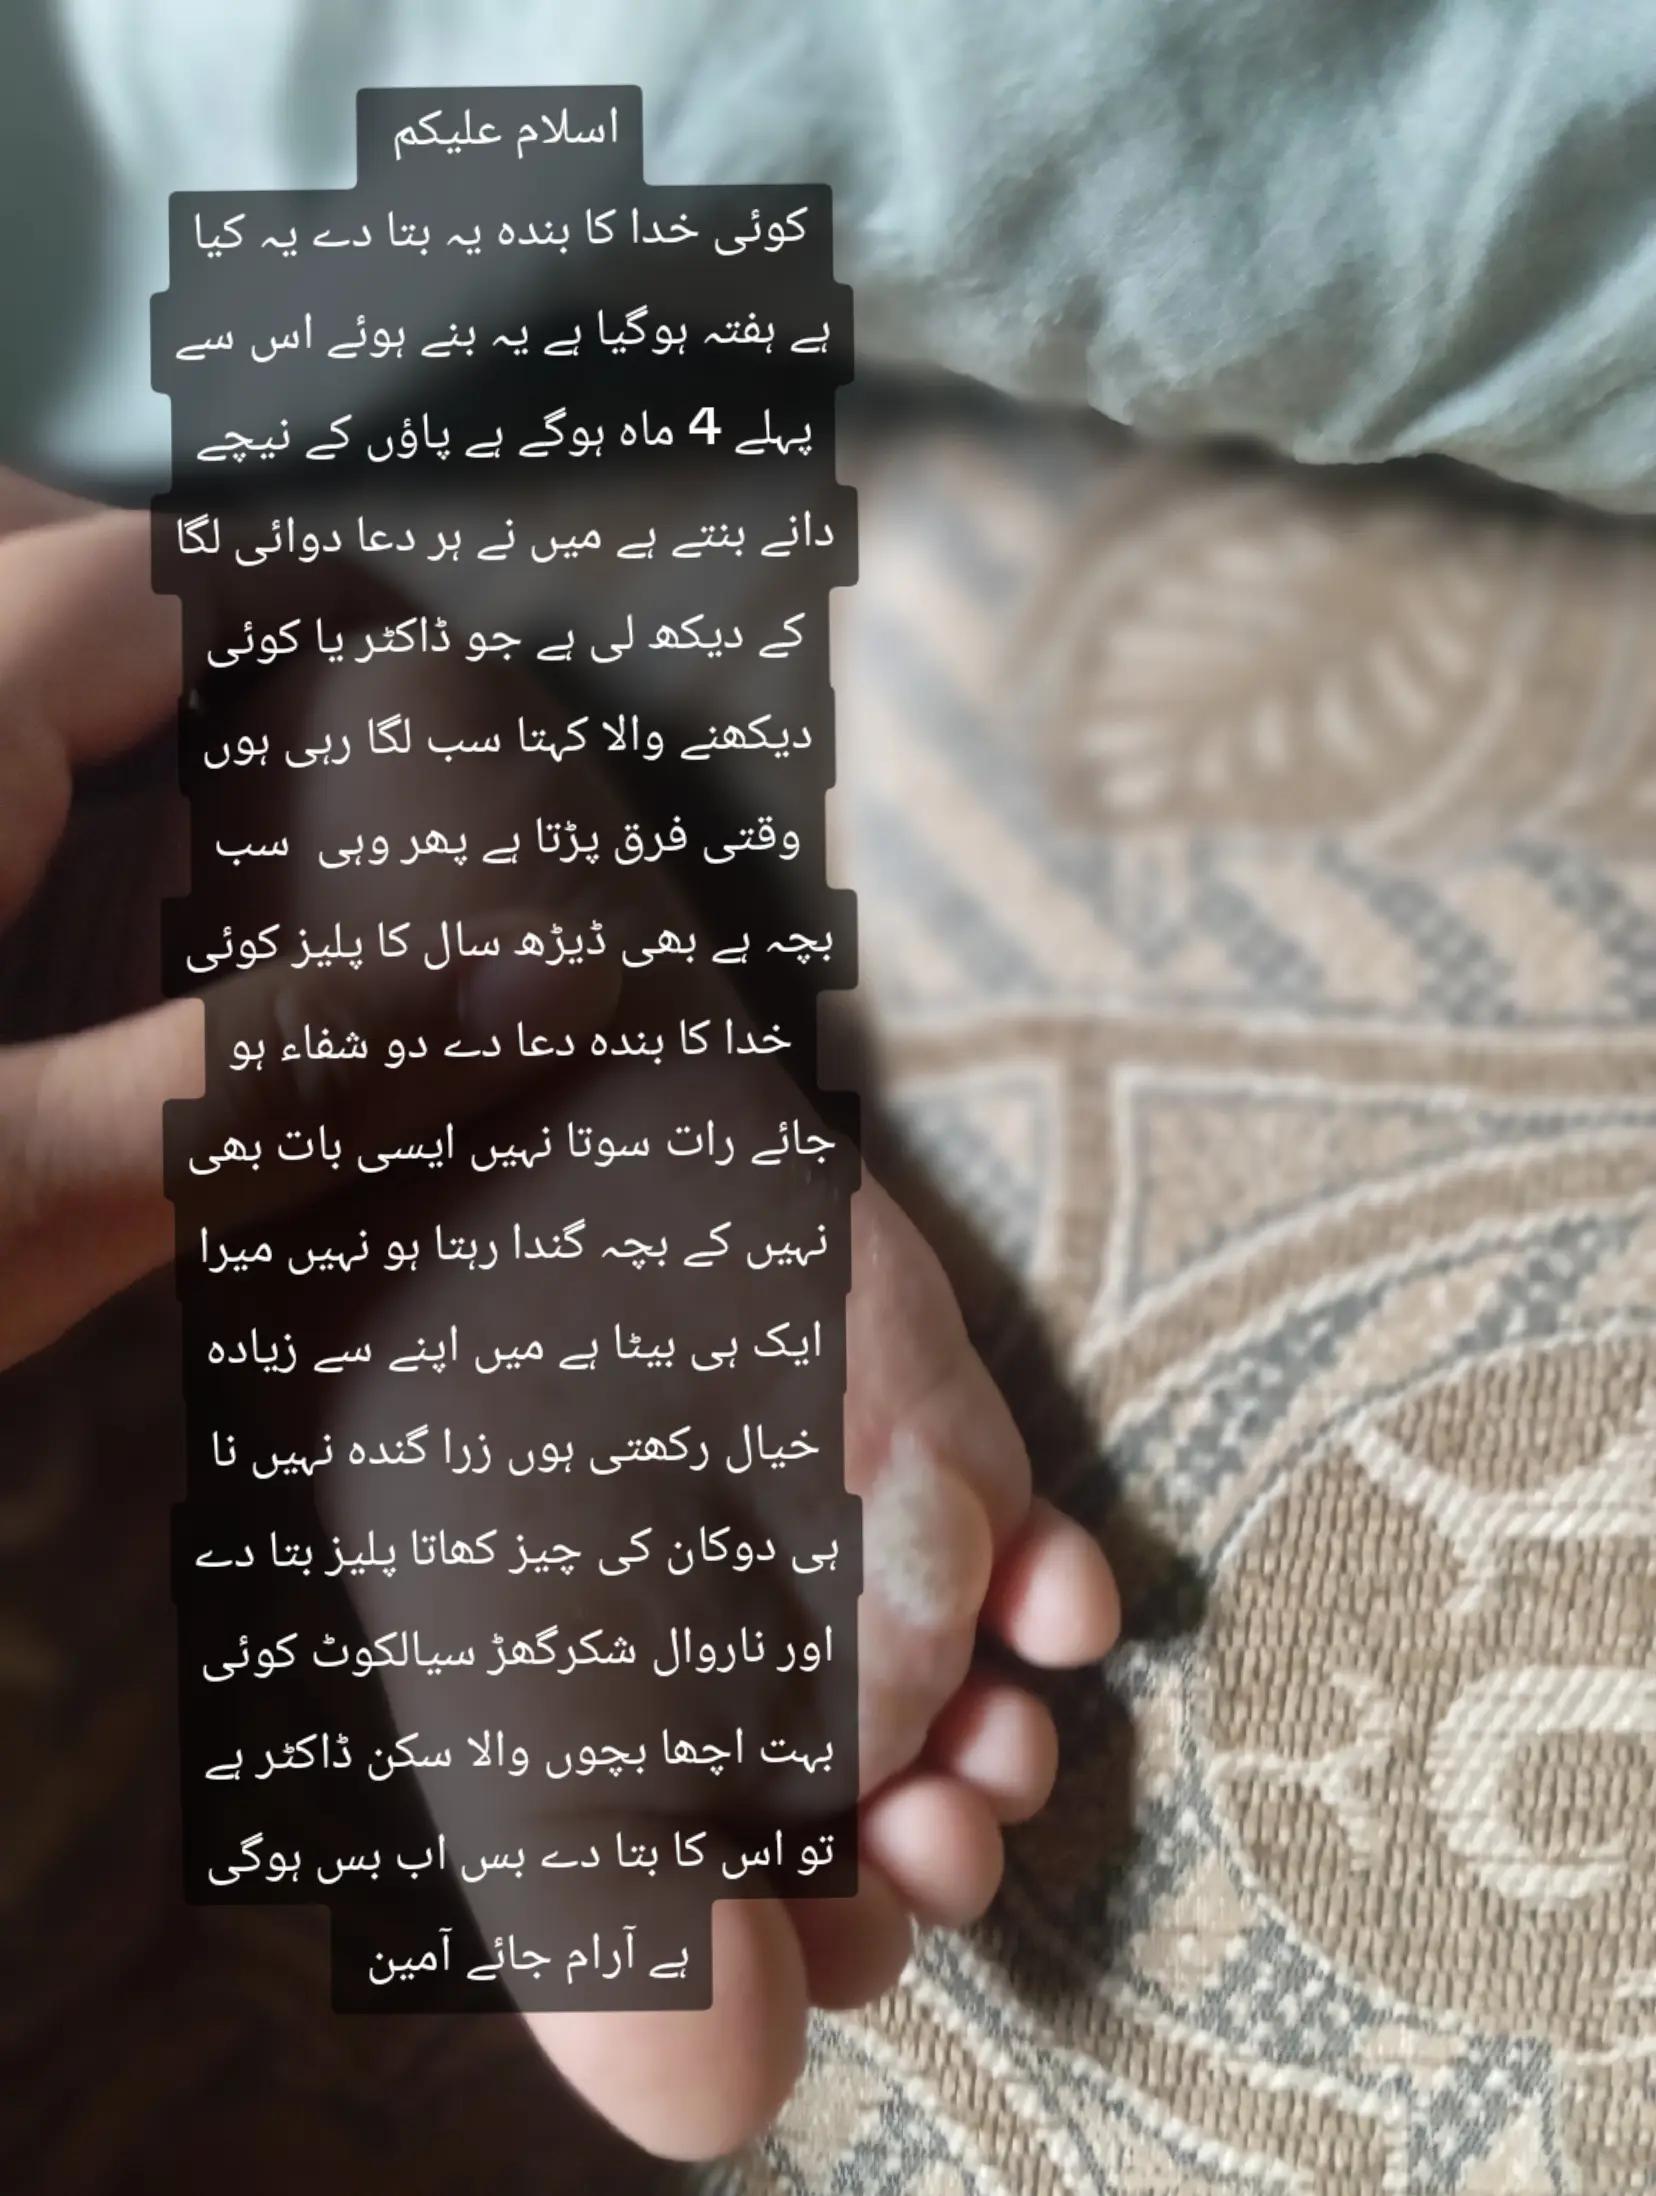 اسلام علیکم
کوئی خدا کا بندہ یہ بتا دے یہ کیا
ہے ہفتہ ہوگیا ہے یہ بنے ہوئے اس سے
پہلے 4 ماہ ہوگے ہے پاؤں کے نیچے
دانے بنتے ہے میں نے ہر دعا دوائی لگا
کے دیکھ لی ہے جو ڈاکٹر یا کوئی
دیکھنے والا کہتا سب لگا رہی ہوں
وقتی فرق پڑتا ہے پھر وہی سب
بچہ ہے بھی ڈیڑھ سال کا پلیز کوئی
خدا کا بندہ دعا دے دو شفاء ہو
جائے رات سوتا نہیں ایسی بات بھی
نہیں کے بچہ گندا رہتا ہو نہیں میرا
ایک ہی بیٹا ہے میں اپنے سے زیادہ
خیال رکھتی ہوں زرا گندہ نہیں نا
ہی دوکان کی چیز کھاتا پلیز بتا دے
اور ناروال شکرگھڑ سیالکوٹ کوئی
بہت اچھا بچوں والا سکن ڈاکٹر ہے
تو اس کا بتا دے بس اب بس ہوگی
ہے آرام جائے آمین